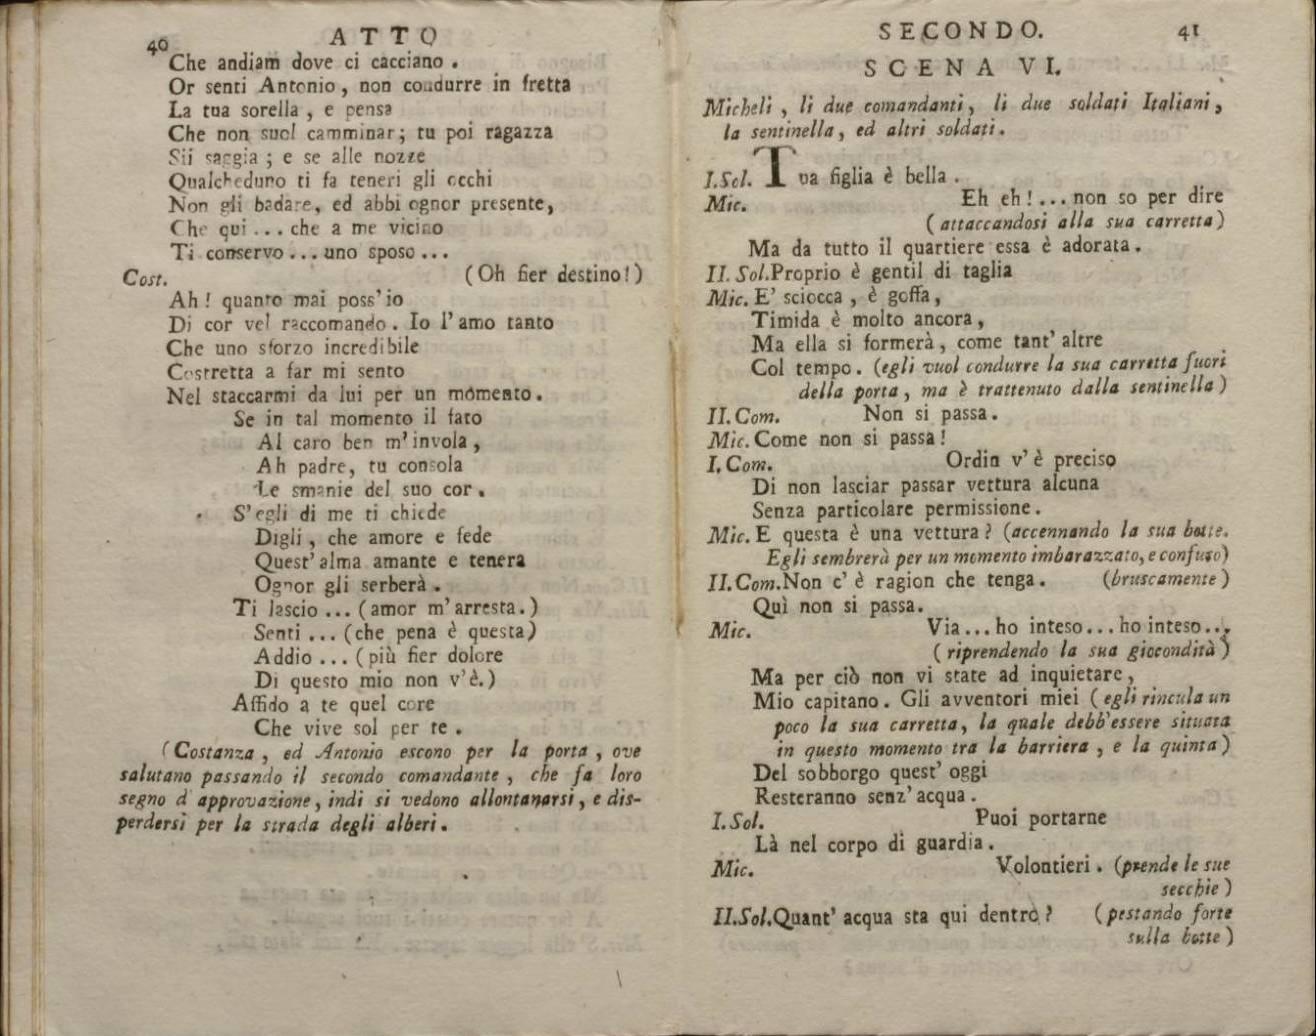 40
ATTO
Che andiam dove ci cacciano .
Or senti Antonio , non condurre in fretta
La tua sorella , e pensa
Che non suol camminar ; tu poi ragazza
Sii saggia ; e se alle nozze
Qualcheduno ti fa teneri gli occhi
Non gli badare, ed abbi ognor presente,
Che qui ... che a me vicino
Ti conservo ... uno sposo ...
Cost. (Oh fier destino!)
Ah! quanto mai poss' io
Di cor vel raccomando . Io l'amo tanto
Che uno sforzo incredibile
Costretta a far mi sento
Nel staccarmi da lui per un momento .
Se in tal momento il fato
Al caro ben m'invola ,
Ah padre, tu consola
Le smanie del suo cor .
S'egli di me ti chiede
Digli , che amore e fede
Quest'alma amante e tenera
Ognor gli serberà .
Ti lascio ... (amor m'arresta.)
Senti ... (che pena è questa)
Addio ... (più fier dolore
Di questo mio non v'è.)
Affido a te quel core
Che vive sol per te .
(Costanza , ed Antonio escono per la porta , ove
salutano passando il secondo comandante , che fa loro
segno d'approvazione, indi si vedono allontanarsi, e dis-
perdersi per la strada degli alberi .
SECONDO.
41
SCENA VI.
Micheli , li due comandanti, li due soldati Italiani ,
la sentinella, ed altri soldati .
I.Sol. Tua figlia è bella .
Mic. Eh eh! ... non so per dire
(attaccandosi alla sua carretta)
Ma da tutto il quartiere essa è adorata .
II. Sol. Proprio è gentil di taglia
Mic. E' sciocca , è goffa,
Timida è molto ancora ,
Ma ella si formerà, come tant' altre
Col tempo . (egli vuol condurre la sua carretta fuori
della porta , ma è trattenuto dalla sentinella)
II. Com. Non si passa .
Mic. Come non si passa !
I. Com. Ordin v'è preciso
Di non lasciar passar vettura alcuna
Senza particolare permissione .
Mic. E questa è una vettura? (accennando la sua botte.
Egli sembrerà per un momento imbarazzato, e confuso)
II. Com. Non c' è ragion che tenga . (bruscamente)
Quì non si passa.
Mic. Via ... ho inteso ... ho inteso ...
(riprendendo la sua giocondità)
Ma per ciò non vi state ad inquietare,
Mio capitano . Gli avventori miei (egli rincula un
poco la sua carretta, la quale debb'essere situata
in questo momento tra la barriera , e la quinta)
Del sobborgo quest' oggi
Resteranno senz'acqua .
I. Sol. Puoi portarne
Là nel corpo di guardia .
Mic. Volontieri . (prende le sue
secchie)
II.Sol. Quant' acqua sta qui dentro? (pestando forte
sulla botte)